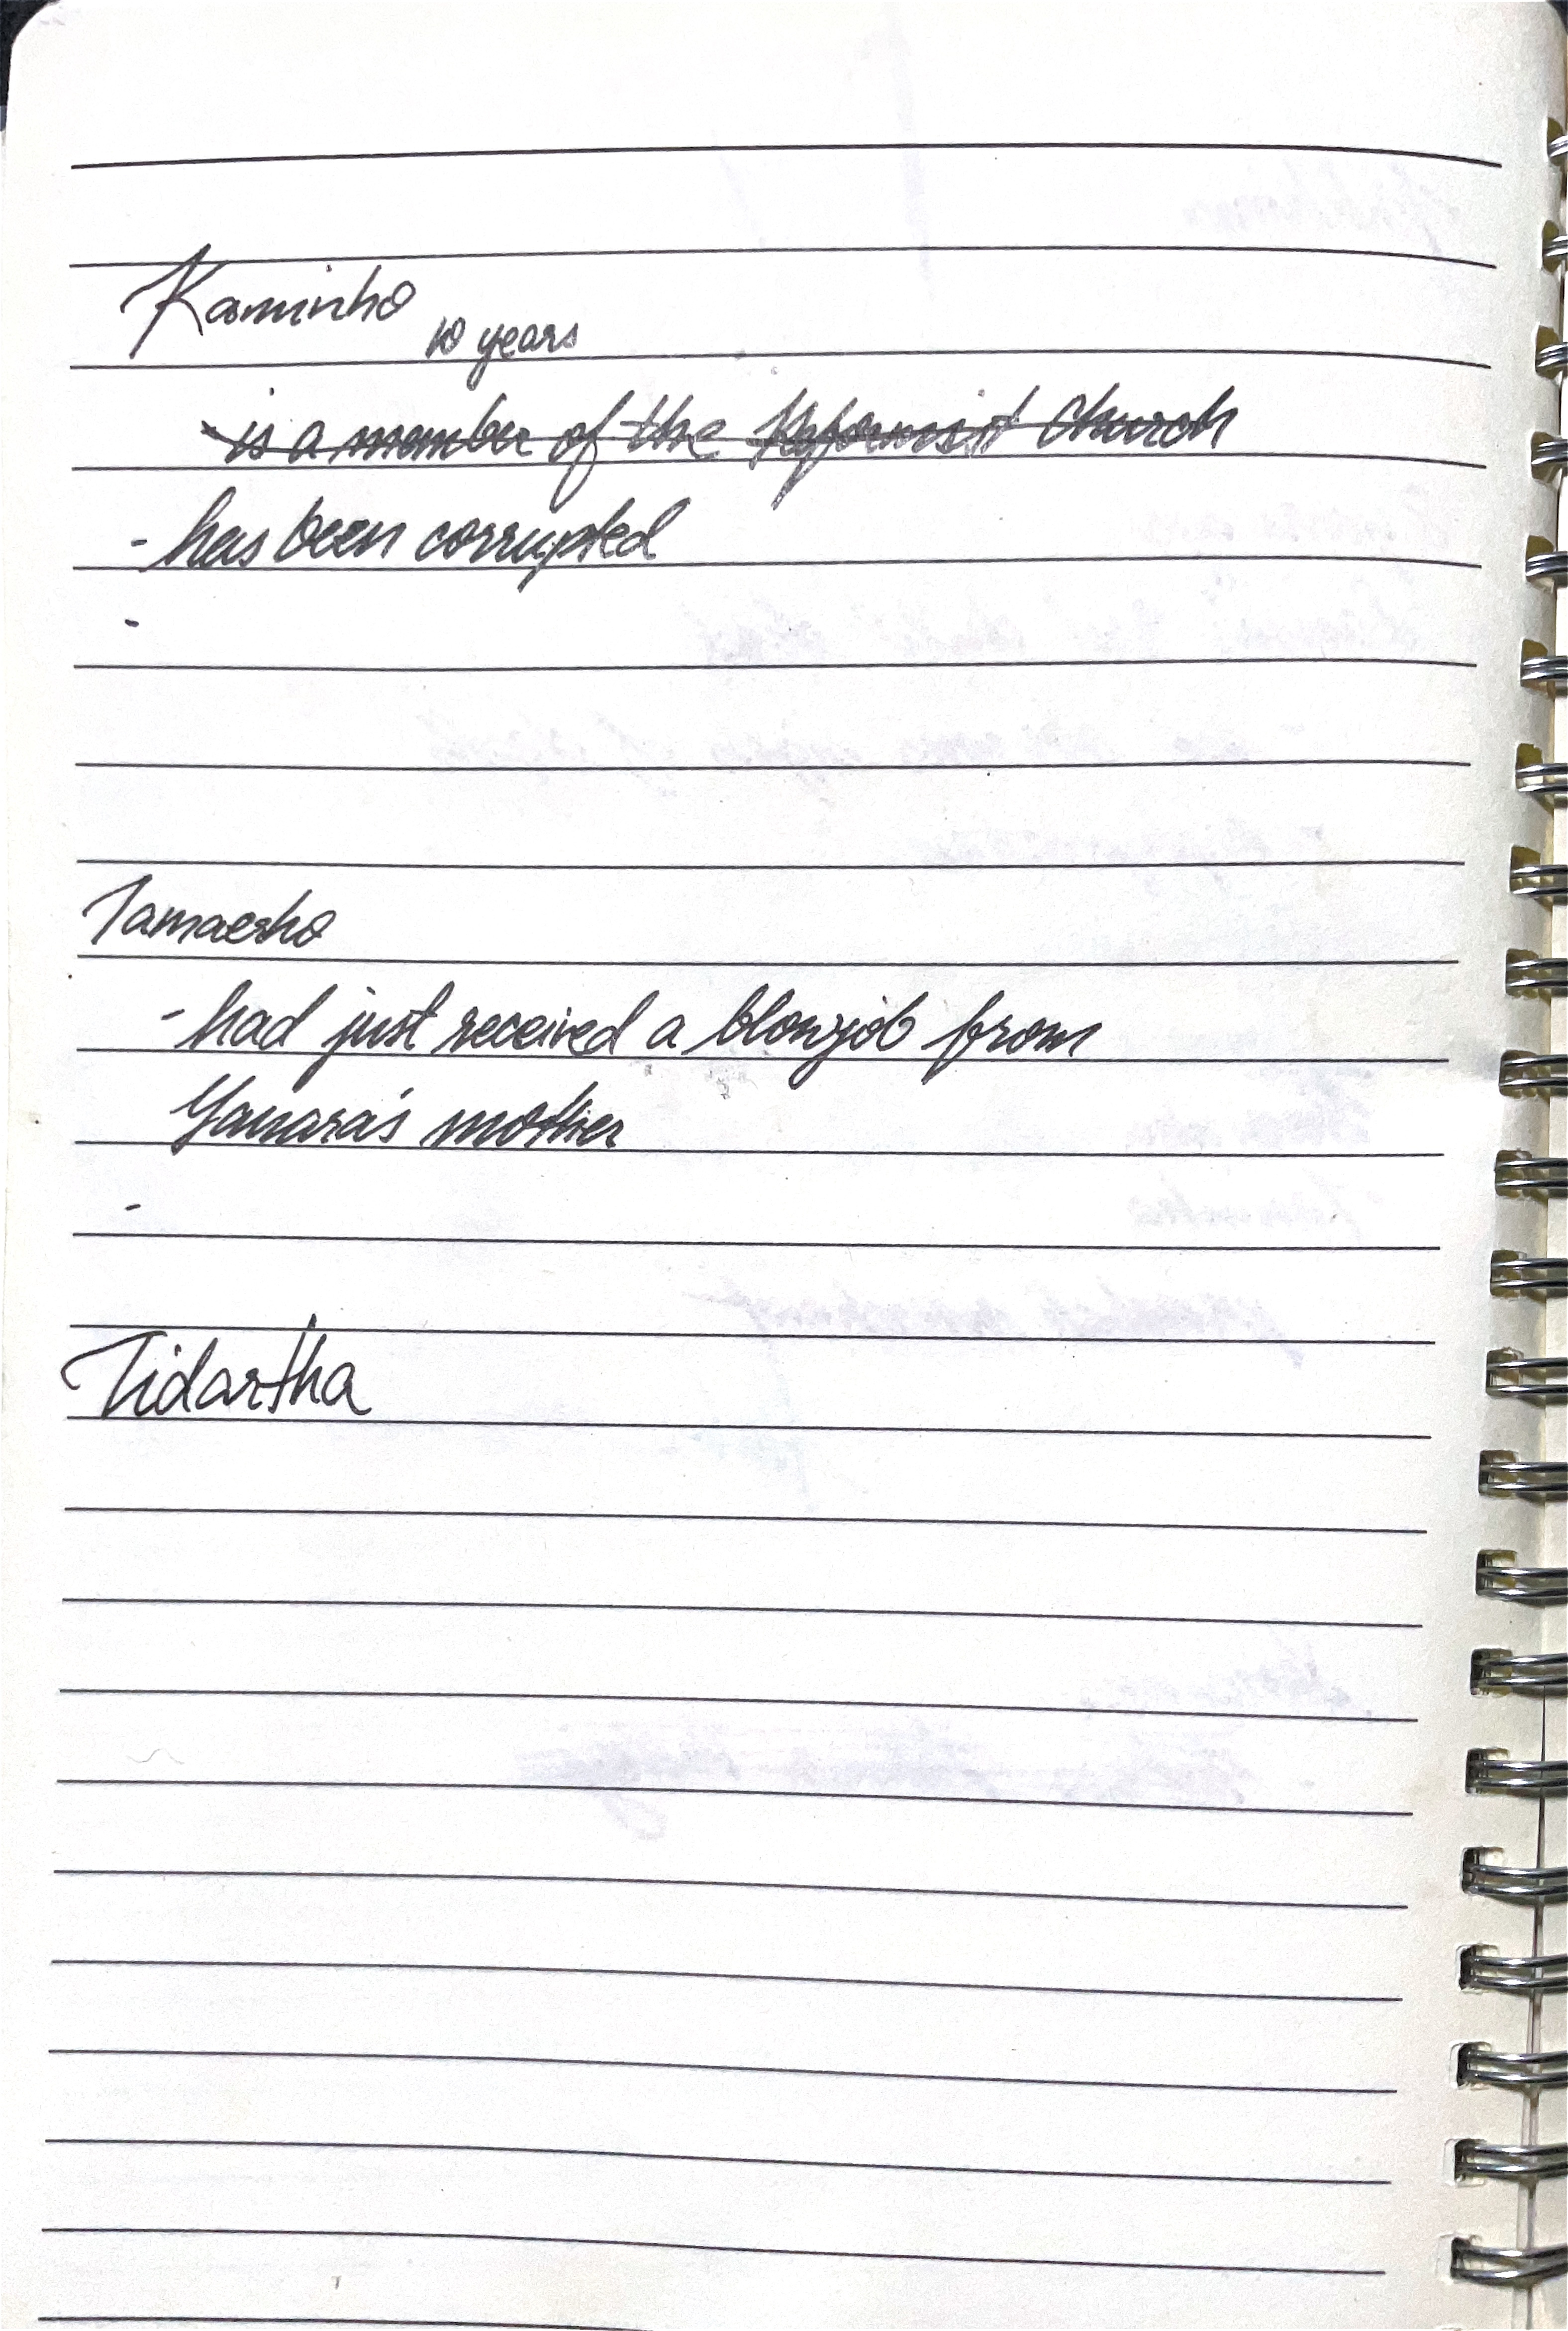 Kaminho
10 years
- is a member of the Reformist Church
- has been corrupted
-
Tamaerho
- had just received a blowjob from
Yanara's mother
-
Tidartha